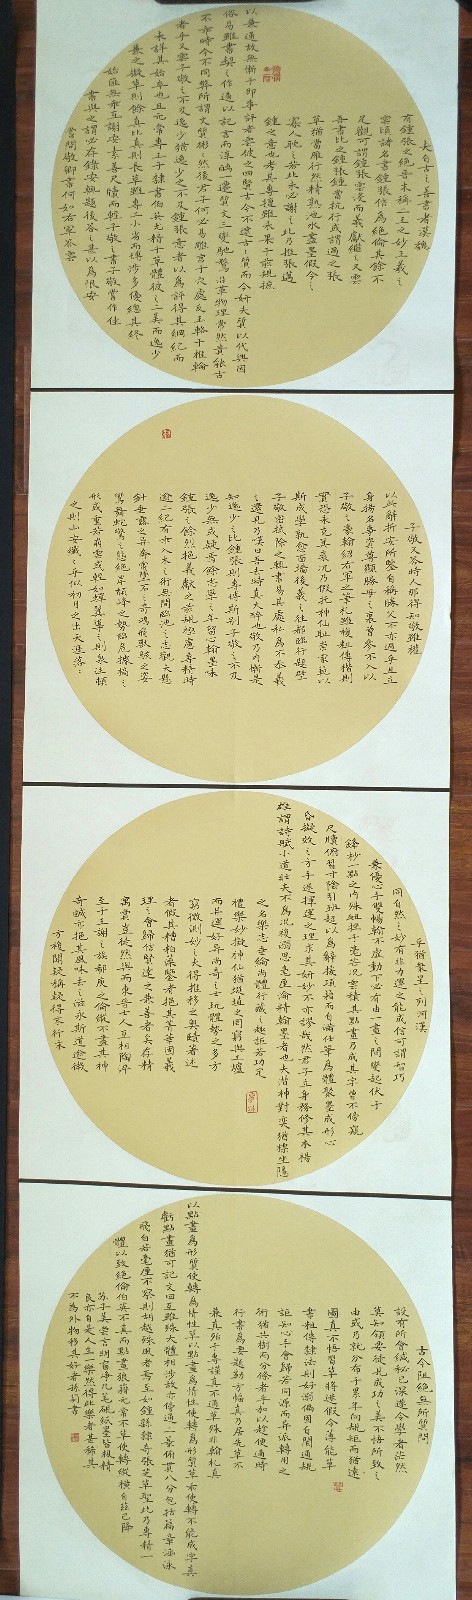 夫自古之善書者漢魏
有鍾張之絕晉末稱二王之妙王羲之
雲頃諸名書鍾張信為絕倫其餘不
足觀可謂鍾張雲沒而羲獻繼之又雲
吾書比之鍾張鍾當抗行或謂過之張
草猶當雁行然精熟池水盡墨假令
寡人耽之若此未必謝之此乃推張邁
鍾之意也考其專擅雖未果于前規摭
以兼通故無慚于即事評者雲彼之四賢古今不逮古之質而今妍夫質以代興因
俗易雖書契之作適以記言而淳醨一遷質文三變馳騖沿革物理常然貴能古
不乖時今不同弊所謂文質彬彬然後君子何必易雕宮于穴處反玉輅于椎輪
者乎又雲子敬之不及逸少猶逸少之不及鍾張意者以為評得其綱紀而
未詳其始卒也且元常專工于隸書伯英尤精于草體彼之二美而逸少
兼之擬草則餘真比真則長草雖專工小劣而博涉多優總其終
始匪無乖互謝安素善尺牘而輕子敬之書子敬嘗作佳
書與之謂必存錄安輒題後答之甚以為恨安
嘗問敬卿書何如右軍答雲
子敬又答時人那得知敬雖權
以此辭折安所鑒自稱勝父不亦過乎且立
身揚名事資尊顯勝母之裏曾參不入以
子敬之豪翰紹右軍之筆札雖複粗傳楷則
實恐未克箕裘況乃假托神仙恥崇家範以
斯成學孰愈面牆後羲之往都臨行題壁
子敬密拭除之輒書易其處私為不忝羲
之還見乃嘆曰吾去時真大醉也敬乃內慚是
知逸少之比鍾張則專博斯別子敬之不及
逸少無或疑焉餘志學之年留心翰墨味
鍾張之餘烈挹羲獻之前規極慮專精時
逾二紀有乖入木之術無間臨池之志觀夫懸
針垂露之異奔雷墜石之奇鴻飛獸駭之姿
鸞舞蛇驚之態絕岸頹峰之勢臨危據槁之
形或重若崩雲或輕如蟬翼導之則泉注頓
之則山安纖之乎似初月之出天涯落之
乎猶眾星之列河漢
同自然之妙有非力運之能成信可謂智巧
兼優心手雙暢翰不虛動下必有由一畫之間變起伏于
鋒杪一點之內殊衄挫于毫芒況雲積其點畫乃成其字曾不傍窺
尺牘俯習寸陰引班超以為辭援項籍而自滿任筆為體聚墨成形心
昏擬效之方手迷揮運之理求其妍妙不亦謬哉然君子立身務修其本楊
雄謂詩賦小道壯夫不為況複溺思毫釐淪精翰墨者也夫潛神對奕猶標坐隱
之名樂志垂綸尚體行藏之趣詎若功定
禮樂妙擬神仙猶埏埴之罔窮與工爐
而並運好異尚奇之士玩體勢之多方
窮微測妙之夫得推移之奧賾著述
者假其糟粕藻鑒者挹其菁華固義
理之會歸信賢達之兼善者矣存精
寓賞豈徒然與而東晉士人互相陶淬
至于王謝之族郗庾之倫縱不盡其神
奇咸亦挹其風味去之滋永斯道逾微
方複聞疑稱疑得末行末
古今阻絕無所質問
設有所會緘秘已深遂令學者茫然
莫知領要徒見成功之美不悟所致之
由或乃就分布于累年向規矩而猶遠
圖真不悟習草將迷假令薄能草
書粗傳隸法則好溺偏固自閡通規
詎知心手會歸若同源而異派轉用之
術猶共樹而分條者乎加以趁便適時
行書為要題勒方幅真乃居先草不
兼真殆于專謹真不通草殊非翰札真
以點畫為形質使轉為情性草以點畫為情性使轉為形質草乖使轉不能成字真
虧點畫猶可記文回互雖殊大體相涉故亦傍通二篆俯貫八分包括篇章涵泳
飛白若毫釐不察則胡越殊風者焉至如鍾繇隸奇張芝草聖此乃專精一
體以致絕倫伯英不真而點畫狼藉元常不草使轉縱橫自茲已降
蘇子美嘗言明窗淨几筆硯紙墨皆極精
良亦自是人生一樂然得此樂者甚稀其
不為外物移其好者